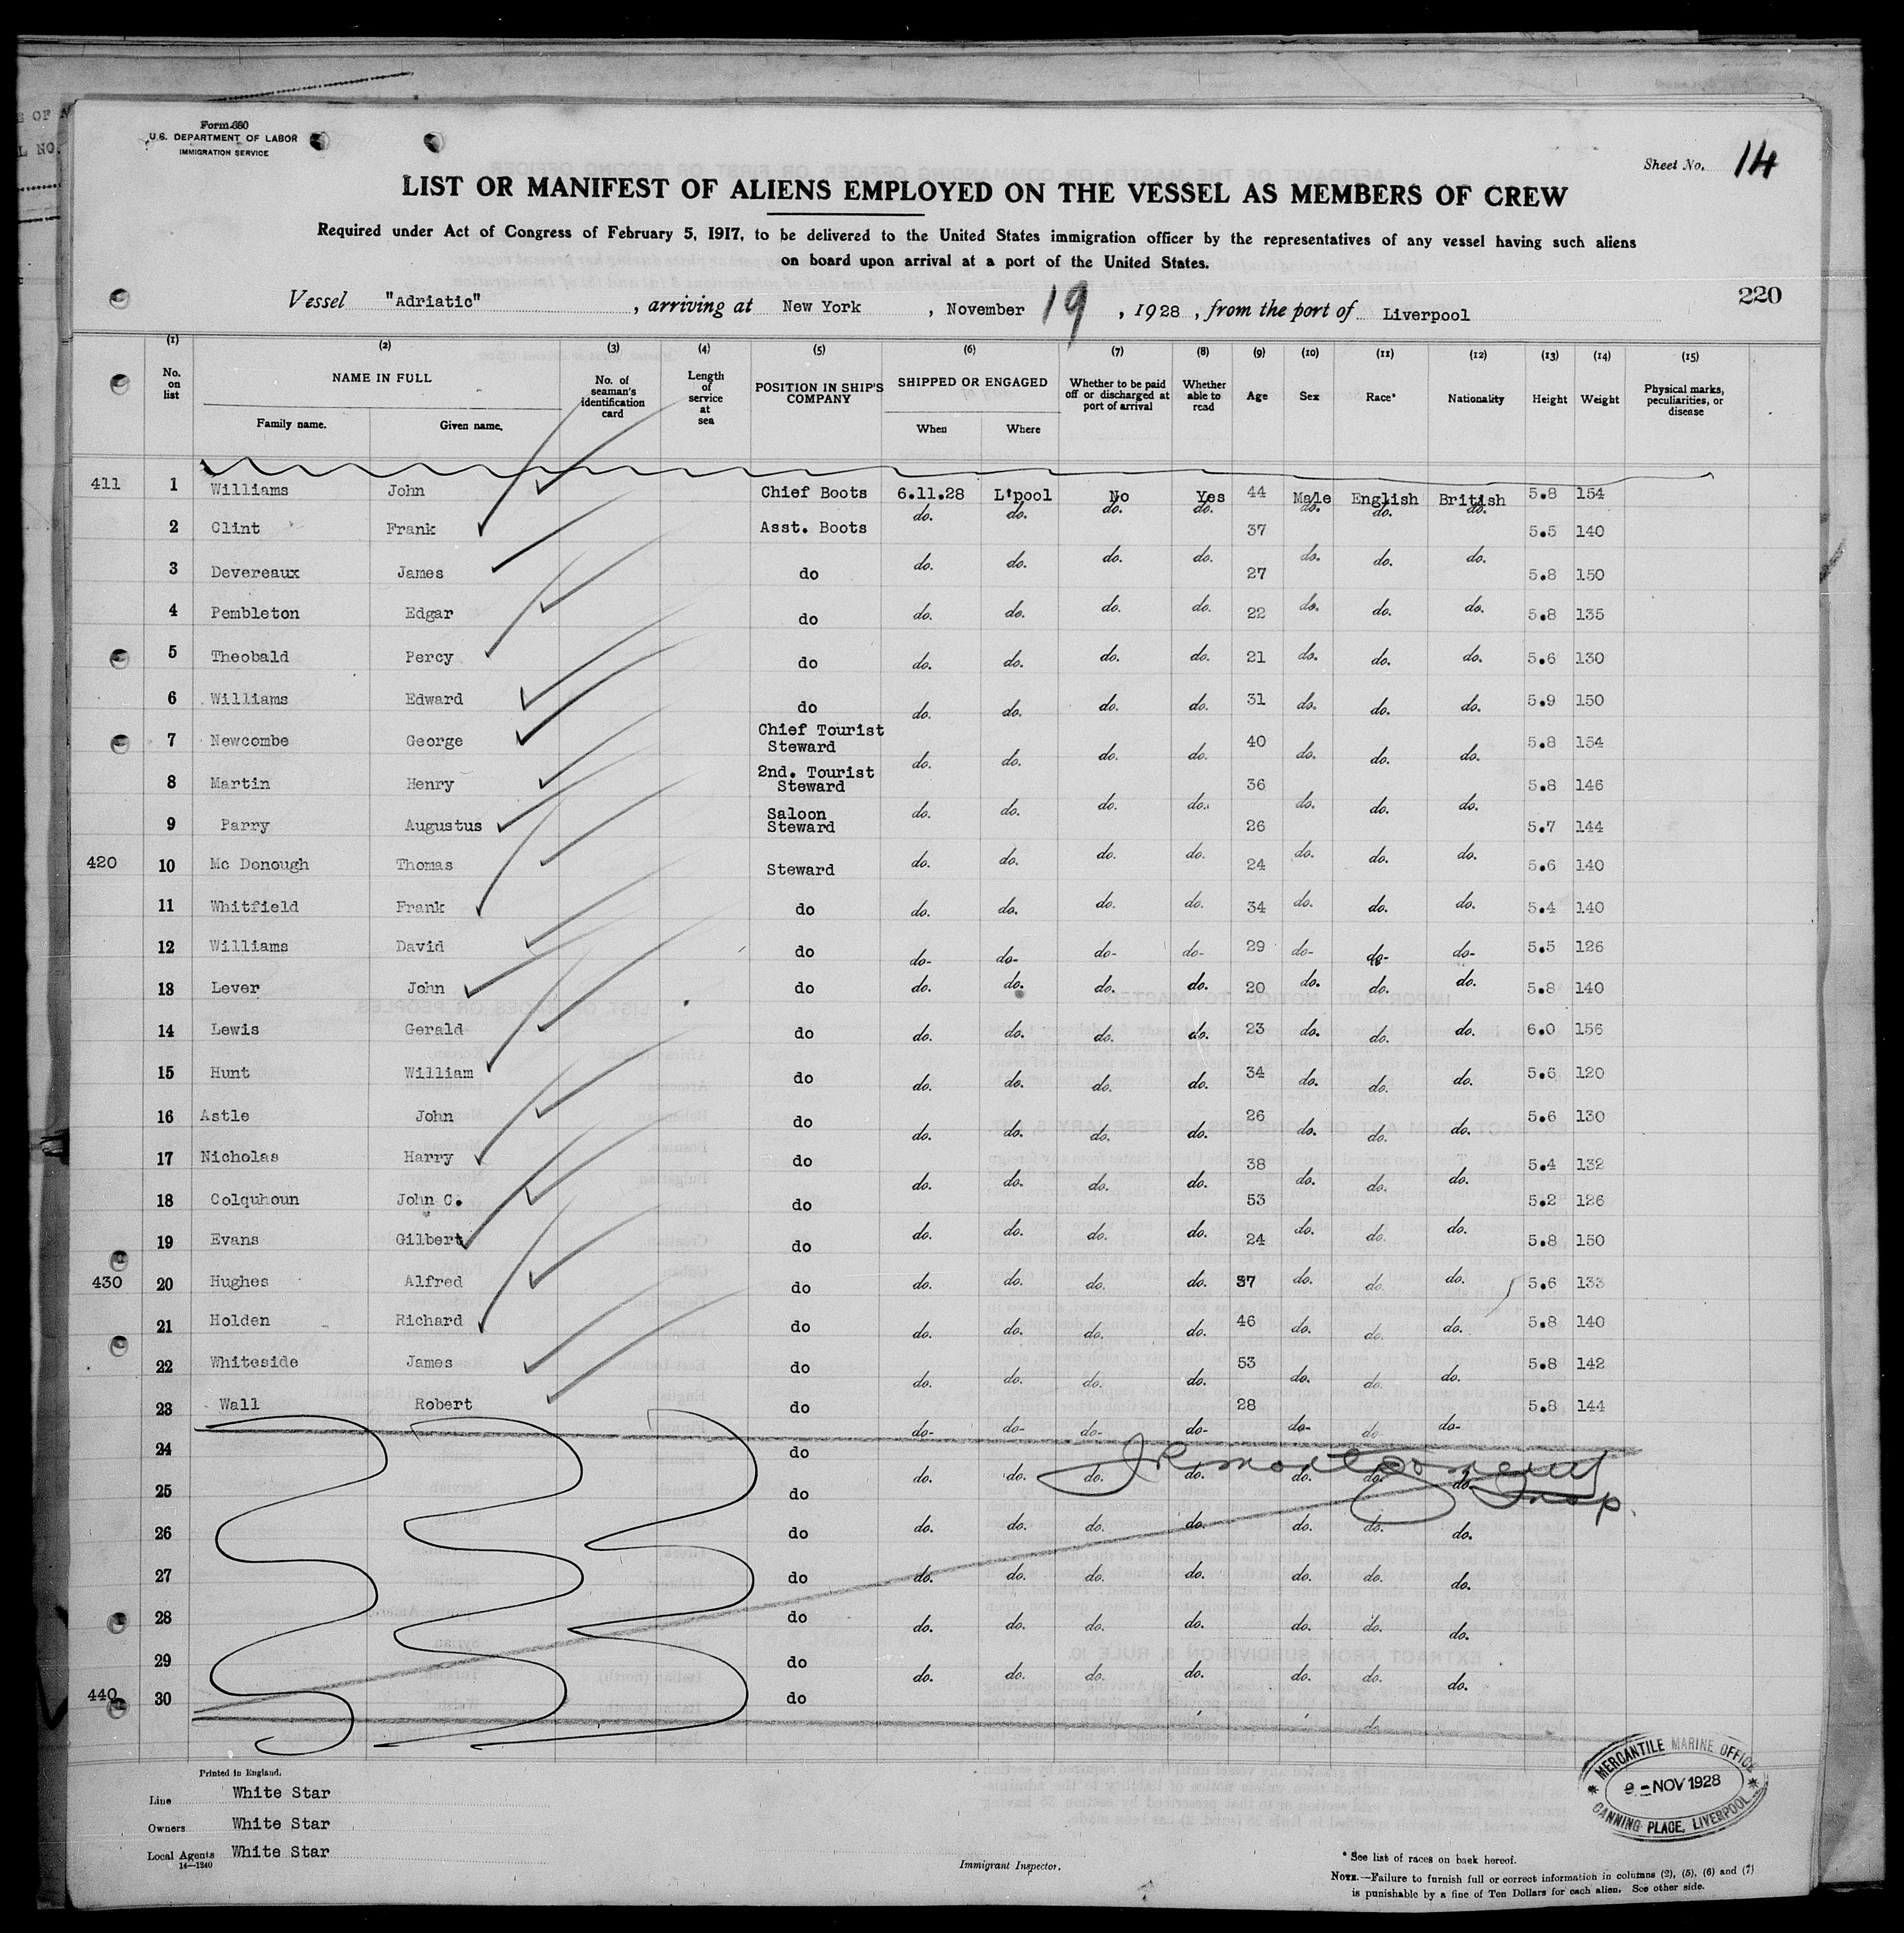 Form 680
U.S. DEPARTMENT OF LABOR
IMMIGRATION SERVICE
Sheet No. 14
LIST OR MANIFEST OF ALIENS EMPLOYED ON THE VESSEL AS MEMBERS OF CREW
Required under Act of Congress of February 5, 1917, to be delivered to the United States immigration officer by the representatives of any vessel having such aliens
on board upon arrival at a port of the United States.
220
Vessel "Adriatic" , arriving at New York , November 19 , 1928 , from the port of Liverpool
(1) (2) (3) (4) (5) (6) (7) (8) (9) (10) (11) (12) (13) (14) (15)
No. on list NAME IN FULL Family name. Given name. No. of seaman's identification card Length of service at sea POSITION IN SHIP'S COMPANY SHIPPED OR ENGAGED When Where Whether to be paid off or discharged at port of arrival Whether able to read Age Sex Race* Nationality Height Weight Physical marks, peculiarities, or disease
411 1 Williams John Chief Boots 6.11.28 L'pool No Yes 44 Male English British 5.8 154
2 Clint Frank Asst. Boots do. do. do. do. 37 do. do. do. 5.5 140
3 Devereaux James do do. do. do. do. 27 do. do. do. 5.8 150
4 Pembleton Edgar do do. do. do. do. 22 do. do. do. 5.8 135
5 Theobald Percy do do. do. do. do. 21 do. do. do. 5.6 130
6 Williams Edward do do. do. do. do. 31 do. do. do. 5.9 150
7 Newcombe George Chief Tourist Steward do. do. do. do. 40 do. do. do. 5.8 154
8 Martin Henry 2nd. Tourist Steward do. do. do. do. 36 do. do. do. 5.8 146
9 Parry Augustus Saloon Steward do. do. do. do. 26 do. do. do. 5.7 144
420 10 Mc Donough Thomas Steward do. do. do. do. 24 do. do. do. 5.6 140
11 Whitfield Frank do do. do. do. do. 34 do. do. do. 5.4 140
12 Williams David do do- do- do- do- 29 do- do- do- 5.5 126
13 Lever John do do. do. do. do. 20 do. do. do. 5.8 140
14 Lewis Gerald do do. do. do. do. 23 do. do. do. 6.0 156
15 Hunt William do do. do. do. do. 34 do. do. do. 5.6 120
16 Astle John do do. do. do. do. 26 do. do. do. 5.6 130
17 Nicholas Harry do do. do. do. do. 38 do. do. do. 5.4 132
18 Colquhoun John C. do do. do. do. do. 53 do. do. do. 5.2 126
19 Evans Gilbert do do. do. do. do. 24 do. do. do. 5.8 150
430 20 Hughes Alfred do do. do. do. do. 37 do. do. do. 5.6 133
21 Holden Richard do do. do. do. do. 46 do. do. do. 5.8 140
22 Whiteside James do do. do. do. do. 53 do. do. do. 5.8 142
23 Wall Robert do do- do- do- do- 28 do- do- do- 5.8 144
24 do do. do. do. do. do. do. do.
J R Montgomery
Insp.
25 do do. do. do. do. do. do. do.
26 do do. do. do. do. do. do. do.
27 do do. do. do. do. do. do. do.
28 do do. do. do. do. do. do. do.
29 do
440 30 do do.
Printed in England.
Line White Star
Owners White Star
Local Agents White Star
14—1240
Immigrant Inspector.
MERCANTILE MARINE OFFICE
NOV 1928
CANNING PLACE, LIVERPOOL
* See list of races on back hereof.
NOTE.—Failure to furnish full or correct information in columns (2), (5), (6) and (7)
is punishable by a fine of Ten Dollars for each alien. See other side.